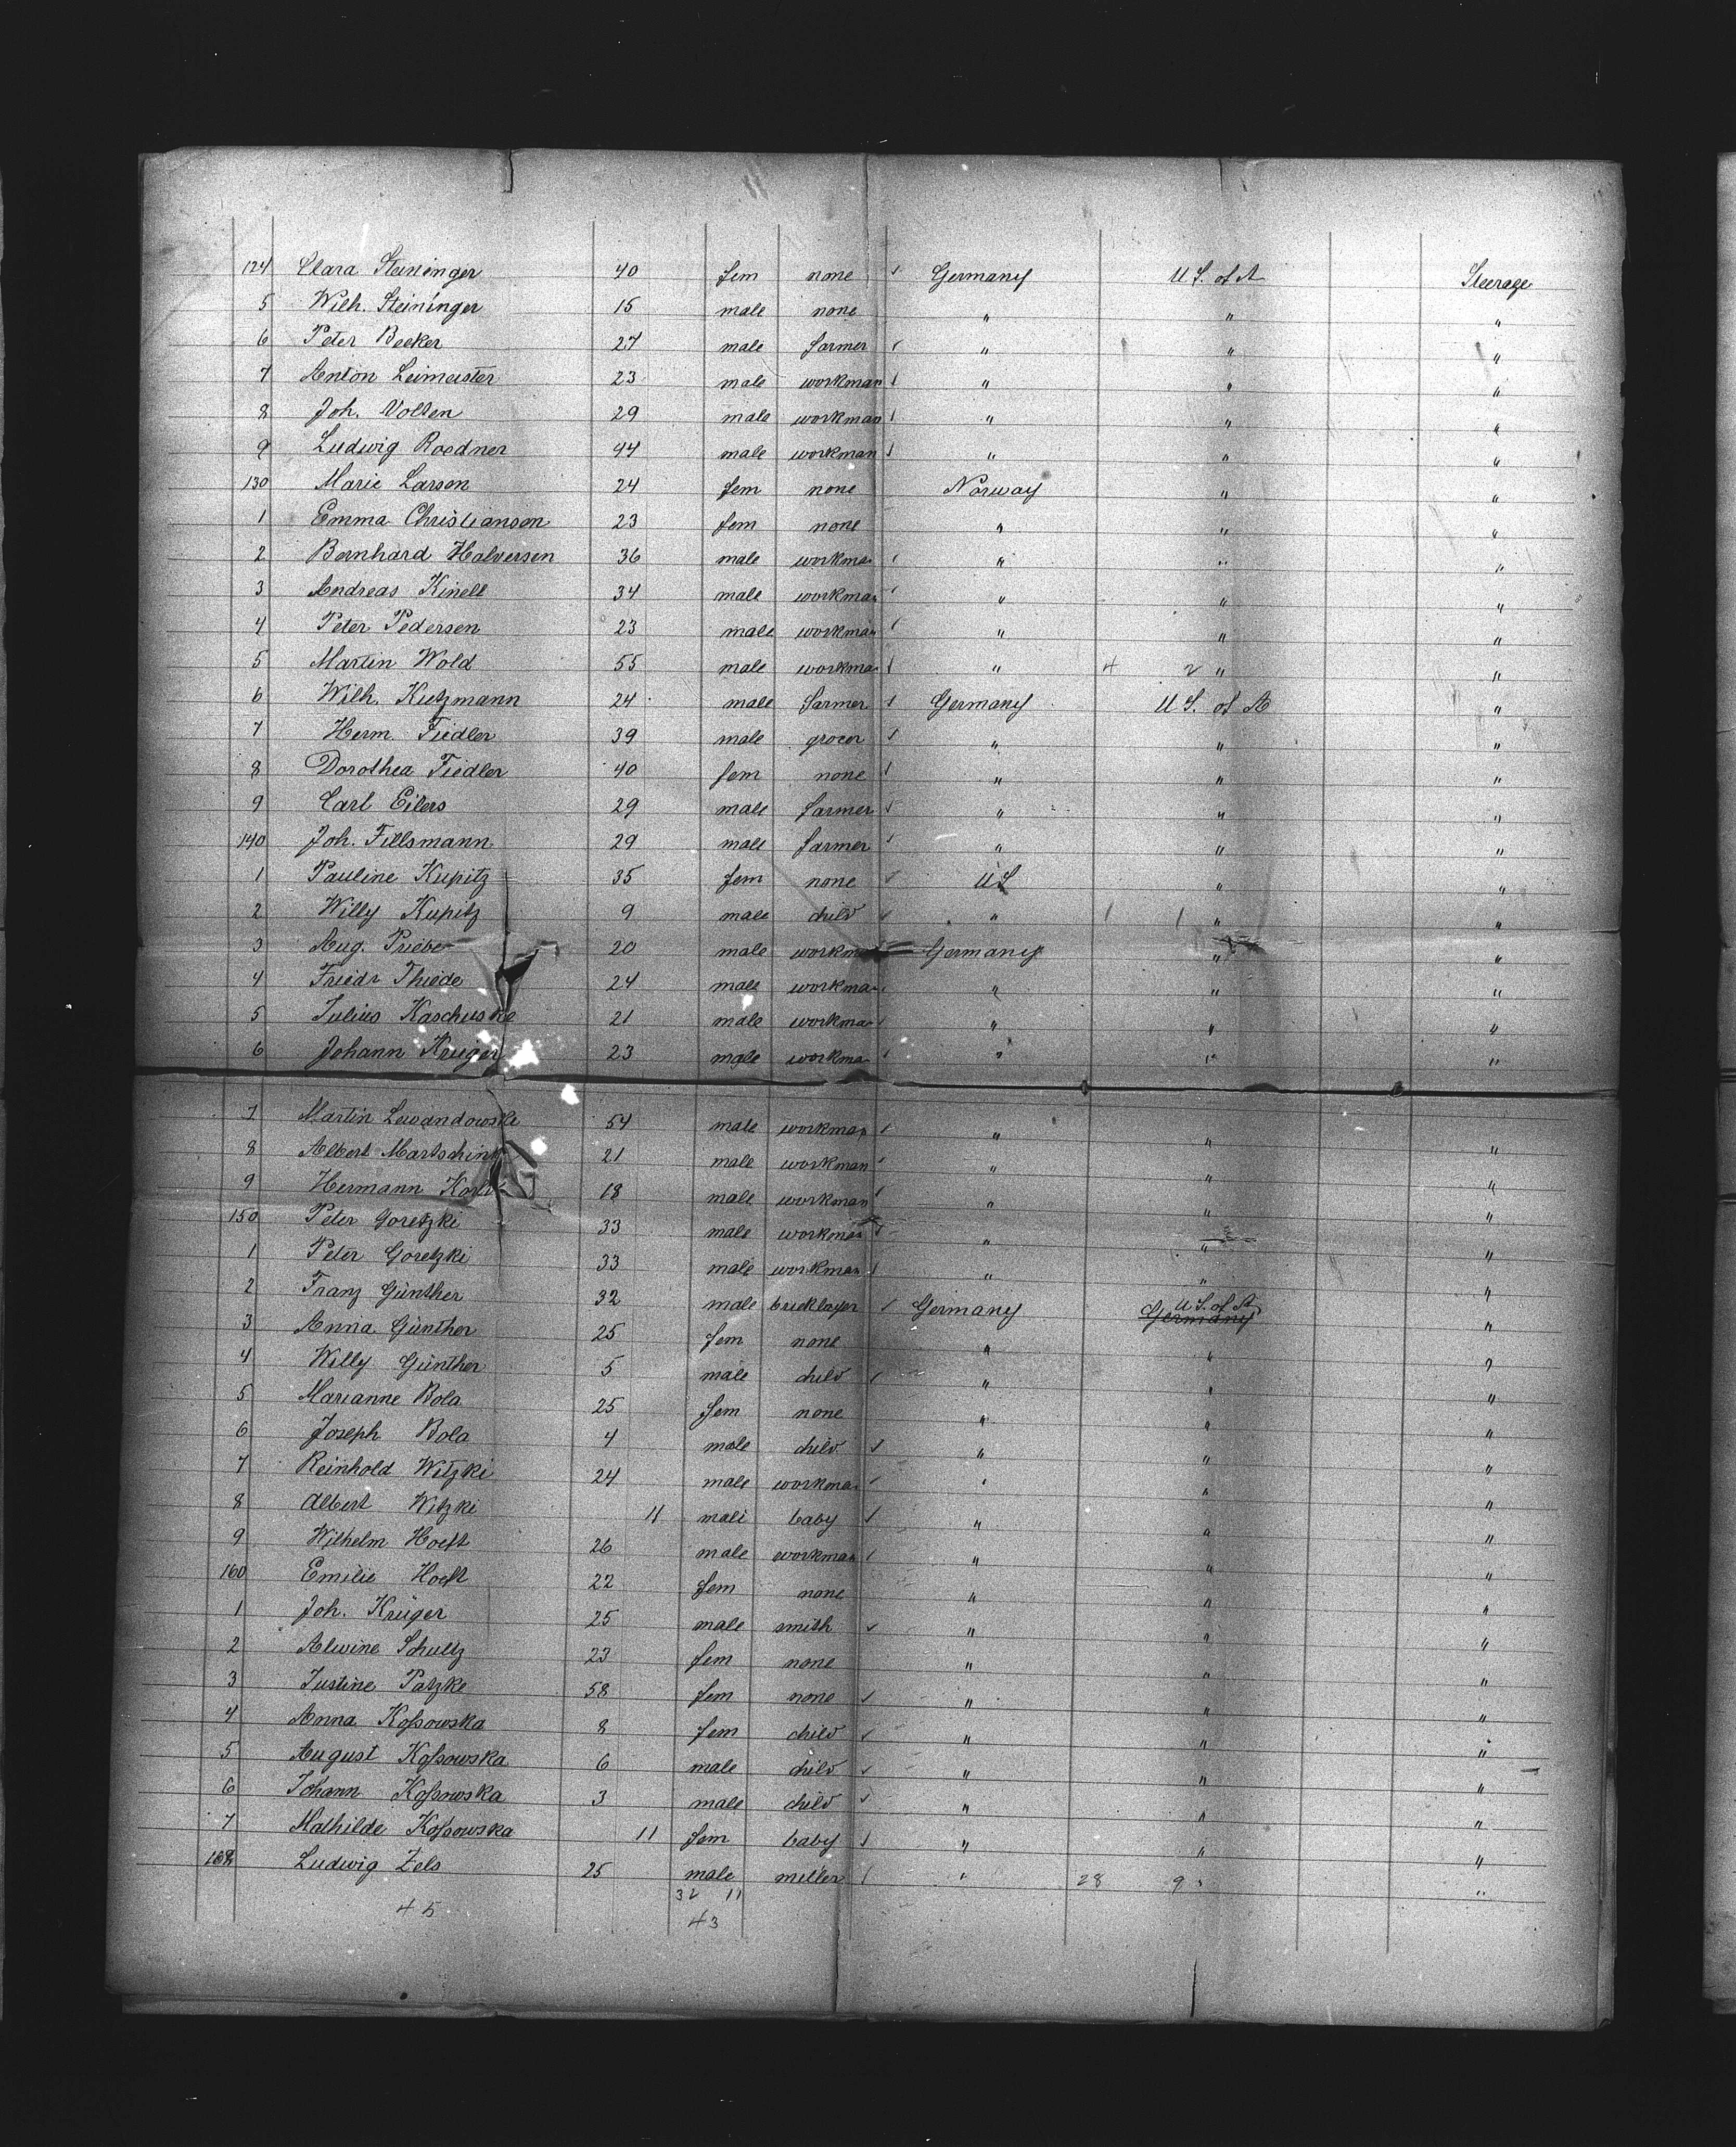 124 Clara Steininger 40 fem none Germany U S. of A Steerage
5 Wilh. Steininger 15 male none " " "
6 Peter Becker 27 male farmer " " "
7 Anton Leimeister 23 male workman " " "
8 Joh. Volten 29 male workman " " "
9 Ludwig Roedner 44 male workman " " "
130 Marie Larson 24 fem none Norway " "
1 Emma Christianson 23 fem none " " "
2 Bernhard Halversen 36 male workman " " "
3 Andreas Kinell 34 male workman " " "
4 Peter Pedersen 23 male workman " " "
5 Martin Wold 55 male workman " 4 2 " "
6 Wilh. Kutzmann 24 male farmer Germany U S. of A "
7 Herm. Fiedler 39 male grocer " " "
8 Dorothea Fiedler 40 fem none " " "
9 Carl Eilers 29 male farmer " " "
140 Joh. Fillsmann 29 male farmer " " "
1 Pauline Kupitz 35 fem none US " "
2 Willy Kupitz 9 male child " 1 1 " "
3 Aug. Priebe 20 male workman Germany " "
4 Friedr Thiede 24 male workman " " "
5 Julius Kaschuske 21 male workman " " "
6 Johann Kruger 23 male workman " " "
7 Martin Lewandowski 54 male workman " " "
8 Albert 21 male workman " " "
9 Hermann 18 male workman " " "
150 Peter Goretzki 33 male workman " " "
1 Peter Goretzki 33 male workman " " "
2 Franz Günther 32 male bricklayer Germany U S. of A Germany "
3 Anna Günther 25 fem none " " "
4 Willy Günther 5 male child " " "
5 Marianne Bola 25 fem none " " "
6 Joseph Bola 4 male child " " "
7 Reinhold Witzki 24 male workman " " "
8 Albert Witzki 11 male baby " " "
9 Wilhelm Hoeft 26 male workman " " "
160 Emilie Hoeft 22 fem none " " "
1 Joh. Krüger 25 male smith " " "
2 Alwine Schultz 23 fem none " " "
3 Justine Patzke 58 fem none " " "
4 Anna Koſsowska 8 fem child " " "
5 August Koſsowska 6 male child " " "
6 Johann Koſsowska 3 male child " " "
7 Mathilde Koſsowska 11 fem baby " " "
168 Ludwig Zels 25 male miller " 28 9 " "
32 11
45 43